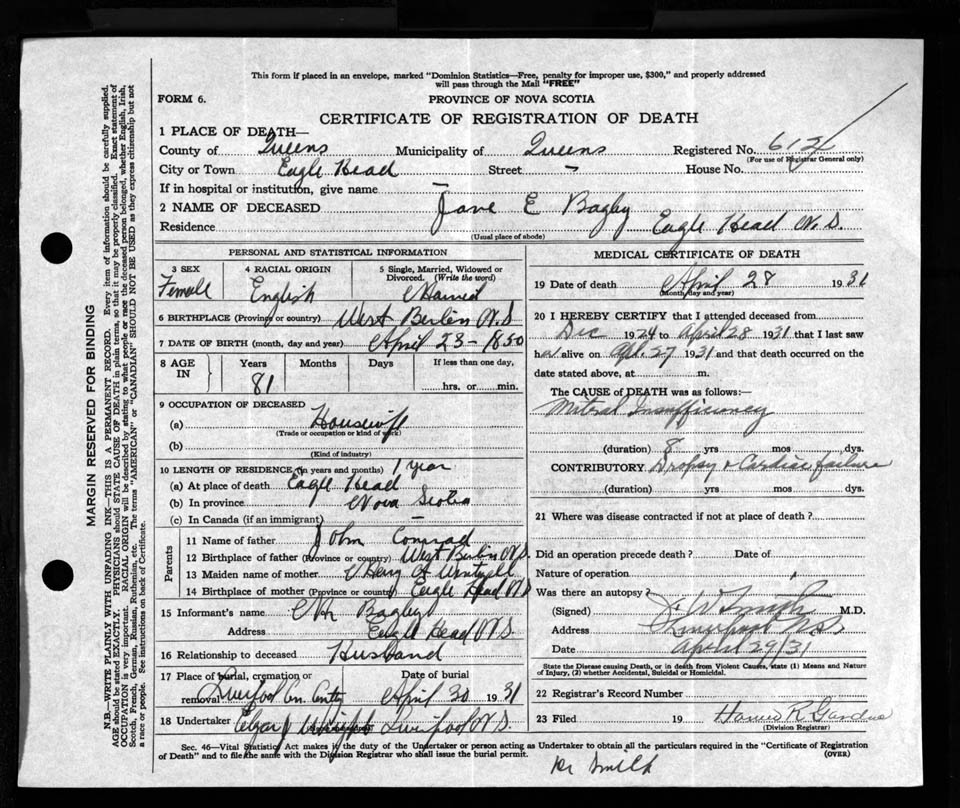 This form if placed in an envelope, marked "Dominion Statistics—Free, penalty for improper use, $300," and properly addressed
will pass through the Mail "FREE"
FORM 6.
PROVINCE OF NOVA SCOTIA
CERTIFICATE OF REGISTRATION OF DEATH
1 PLACE OF DEATH—
County of Queens Municipality of Queens Registered No.
(For use of Registrar General only)
City or Town Eagle Head Street — House No.
If in hospital or institution, give name —
2 NAME OF DECEASED Jane E Bagby
Residence Eagle Head N.S.
(Usual place of abode)
PERSONAL AND STATISTICAL INFORMATION
3 SEX Female
4 RACIAL ORIGIN English
5 Single, Married, Widowed or Divorced. (Write the word) Married
6 BIRTHPLACE (Province or country) West Berlin N.S
7 DATE OF BIRTH (month, day and year) April 23 - 1850
8 AGE IN Years 81 Months Days If less than one day, hrs. or min.
9 OCCUPATION OF DECEASED
(a) Housewife
(Trade or occupation or kind of work)
(b)
(Kind of industry)
10 LENGTH OF RESIDENCE (in years and months) 1 year
(a) At place of death Eagle Head
(b) In province Nova Scotia
(c) In Canada (if an immigrant)
Parents
11 Name of father John Conrad
12 Birthplace of father (Province or country) West Berlin N.S.
13 Maiden name of mother
14 Birthplace of mother (Province or country) Eagle Head N.S
15 Informant's name Bagby
Address Eagle Head N.S.
16 Relationship to deceased Husband
17 Place of burial, cremation or removal Date of burial April 30 1931
18 Undertaker Liverpool N.S.
MEDICAL CERTIFICATE OF DEATH
19 Date of death April 28 1931
(Month, day and year)
20 I HEREBY CERTIFY that I attended deceased from
Dec 1924 to April 28 1931 that I last saw
her alive on Apl. 27 1931 and that death occurred on the
date stated above, at m.
The CAUSE of DEATH was as follows:
Mitral Insufficiency
(duration) 8 yrs mos. dys.
CONTRIBUTORY Dropsy & Cardiac failure
(duration) yrs. mos. dys.
21 Where was disease contracted if not at place of death?
Did an operation precede death? Date of
Nature of operation
Was there an autopsy?
(Signed) J. W. Smith M.D.
Address Liverpool N.S.
Date April 29/31
State the Disease causing Death, or in death from Violent Causes, state (1) Means and Nature
of Injury, (2) whether Accidental, Suicidal or Homicidal.
22 Registrar's Record Number
23 Filed 19
(Division Registrar)
Sec. 46—Vital Statistics Act makes it the duty of the Undertaker or person acting as Undertaker to obtain all the particulars required in the "Certificate of Registration
of Death" and to file the same with the Division Registrar who shall issue the burial permit.
(OVER)
Dr Smith
MARGIN RESERVED FOR BINDING
N.B.—WRITE PLAINLY WITH UNFADING INK—THIS IS A PERMANENT RECORD. Every item of information should be carefully supplied.
AGE should be stated EXACTLY. PHYSICIANS should STATE CAUSE OF DEATH in plain terms, so that it may be properly classified. Exact statement of
OCCUPATION is very important. RACIAL ORIGIN will be described by stating to what people or race the deceased person belonged, whether English, Irish,
Scotch, French, German, Russian, Ruthenian, etc. The terms "AMERICAN" or "CANADIAN" SHOULD NOT BE USED as they express citizenship but not
a race or people. See instructions on back of Certificate.